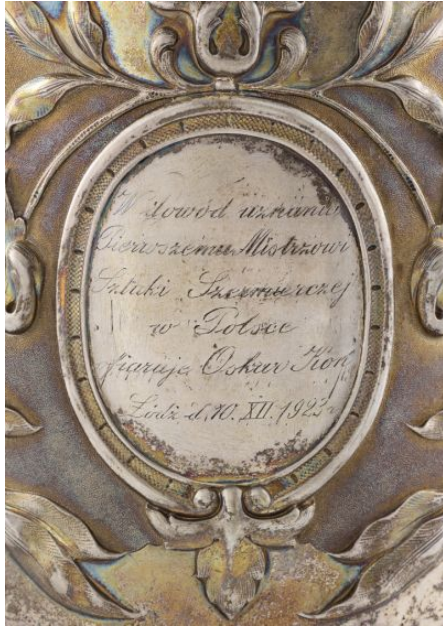 W dowód uznania
Pierwszemu Mistrzowi
Sztuki Szermierczej
w Polsce
fiaruje Oskar Kon
Łódź d. 10. XII. 1923 r.